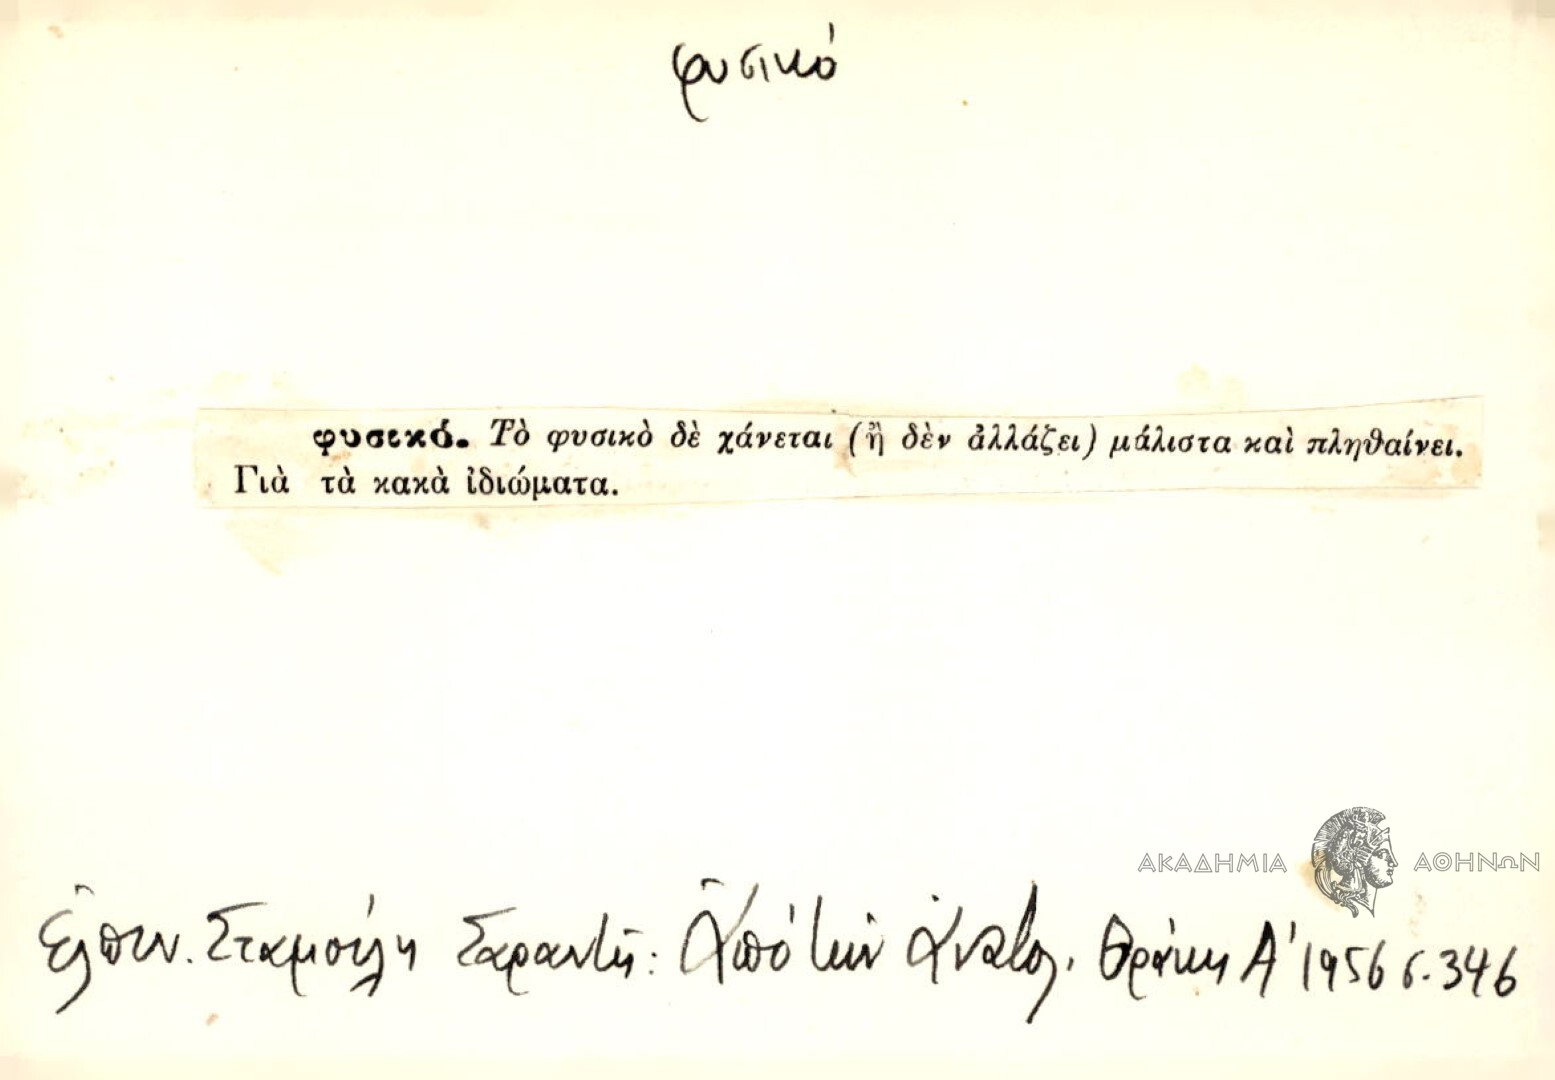 φυσικό
φυσικό. Τὸ φυσικὸ δὲ χάνεται (ἢ δὲν ἀλλάζει) μάλιστα καὶ πληθαίνει.
Γιὰ τὰ κακὰ ἰδιώματα.
ΑΚΑΔΗΜΙΑ ΑΘΗΝΩΝ
Ἐλπιν. Σταμούλη Σαραντῆ: Ἀπό τὴν Ἀνατολ. Θράκη Α' 1956 σ. 346